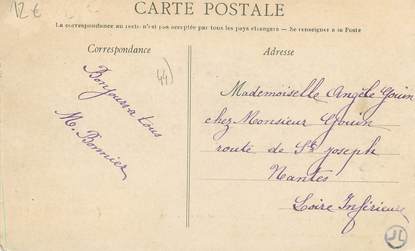 12 €
CARTE POSTALE
La correspondance au recto n'est pas acceptée par tous les pays étrangers — Se renseigner à la Poste
Correspondance
Adresse
44)
Bonjours a tous
M. Bonnier
Mademoiselle Angèle Gouin
chez Monsieur Gouin
route de St joseph
Nantes
Loire Inférieure
JL